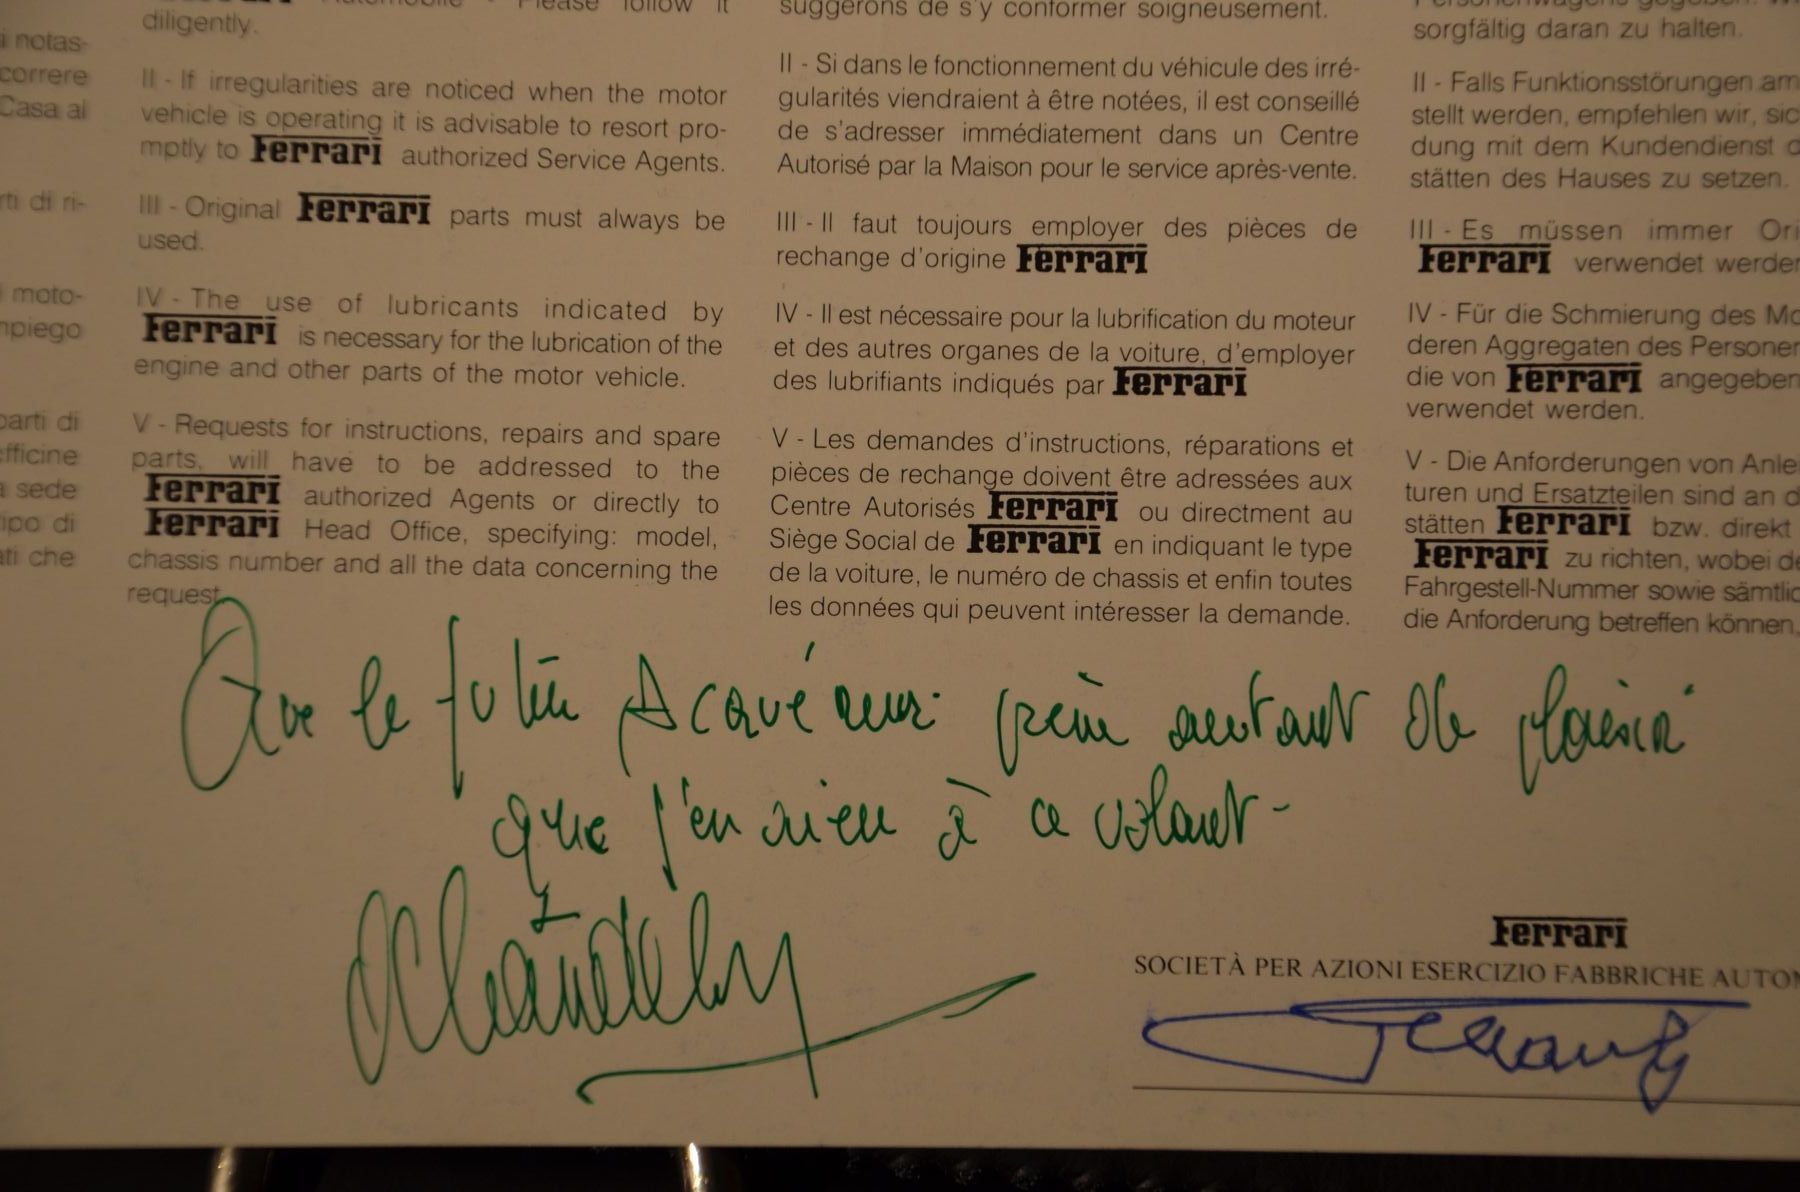 diligently.
II - If irregularities are noticed when the motor
vehicle is operating it is advisable to resort pro-
mptly to Ferrari authorized Service Agents.
III - Original Ferrari parts must always be
used.
IV - The use of lubricants indicated by
Ferrari is necessary for the lubrication of the
engine and other parts of the motor vehicle.
V - Requests for instructions, repairs and spare
parts, will have to be addressed to the
Ferrari authorized Agents or directly to
Ferrari Head Office, specifying: model,
chassis number and all the data concerning the
request.
suggérons de s'y conformer soigneusement.
II - Si dans le fonctionnement du véhicule des irré-
gularités viendraient à être notées, il est conseillé
de s'adresser immédiatement dans un Centre
Autorisé par la Maison pour le service après-vente.
III - Il faut toujours employer des pièces de
rechange d'origine Ferrari
IV - Il est nécessaire pour la lubrification du moteur
et des autres organes de la voiture, d'employer
des lubrifiants indiqués par Ferrari
V - Les demandes d'instructions, réparations et
pièces de rechange doivent être adressées aux
Centre Autorisés Ferrari ou directment au
Siège Social de Ferrari en indiquant le type
de la voiture, le numéro de chassis et enfin toutes
les données qui peuvent intéresser la demande.
sorgfältig daran zu halten.
II - Falls Funktionsstörungen am
stellt werden, empfehlen wir, sic
dung mit dem Kundendienst d
stätten des Hauses zu setzen.
III - Es müssen immer Ori
Ferrari verwendet werden
IV - Für die Schmierung des Mo
deren Aggregaten des Personen
die von Ferrari angegeben
verwendet werden.
V - Die Anforderungen von Anlei
turen und Ersatzteilen sind an d
stätten Ferrari bzw. direkt
Ferrari zu richten, wobei de
Fahrgestell-Nummer sowie sämtlic
die Anforderung betreffen können,
i notas-
correre
Casa al
rti di ri-
moto-
mpiego
parti di
officine
a sede
tipo di
ati che
Que le futur Acquéreur prenne autant de plaisir
que j'en ai eu à ce volant -
Ferrari
SOCIETÀ PER AZIONI ESERCIZIO FABBRICHE AUTOM